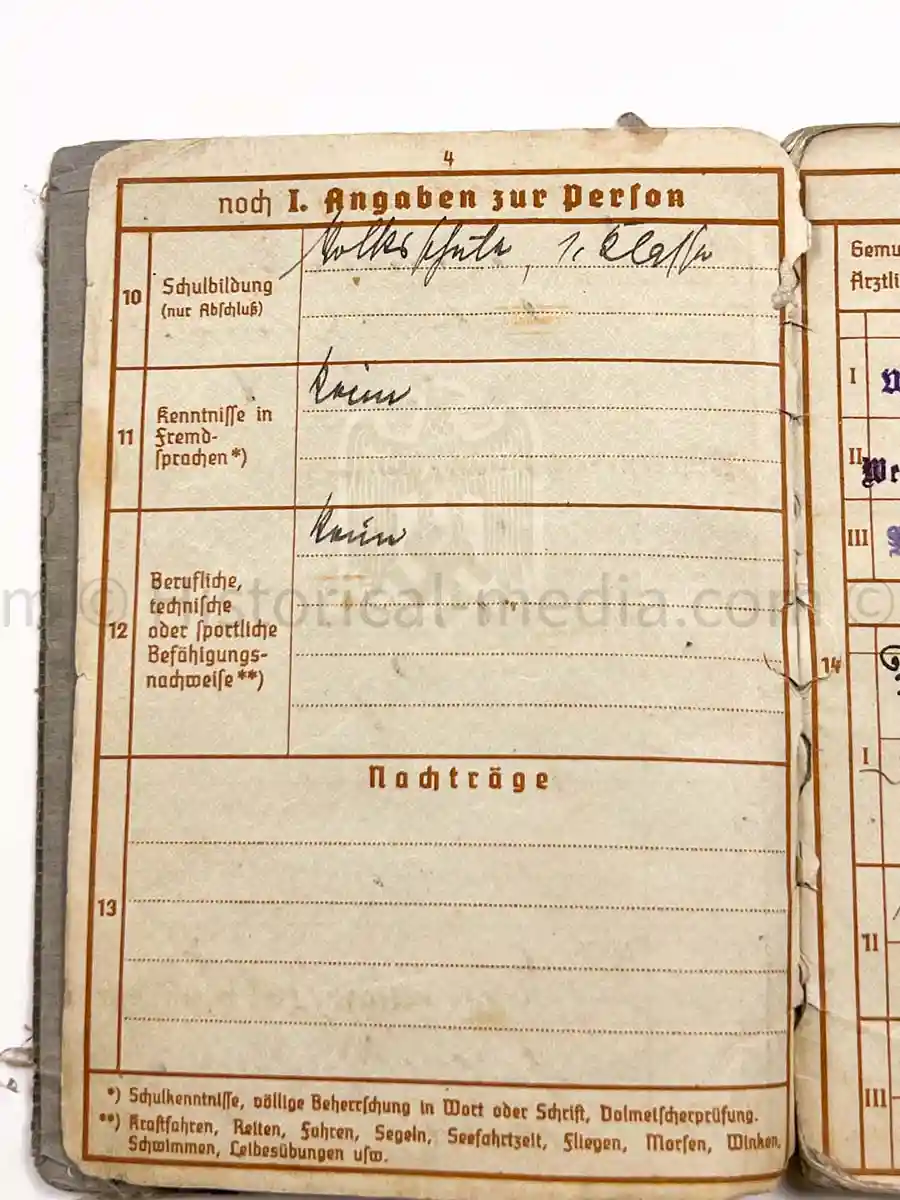 4
noch I. Angaben zur Person
10 Schulbildung
(nur Abschluß)
Volksschule, 1. Klasse
11 Kenntnisse in
Fremd-
sprachen*)
Keine
12 Berufliche,
technische
oder sportliche
Befähigungs-
nachweise**)
Keine
Nachträge
13
*) Schulkenntnisse, völlige Beherrschung in Wort oder Schrift, Dolmetscherprüfung.
**) Kraftfahren, Reiten, Fahren, Segeln, Seefahrtzeit, Fliegen, Morsen, Winken,
Schwimmen, Leibesübungen usw.
m © historical-media.com ©
I
II
III
14
I
II
III